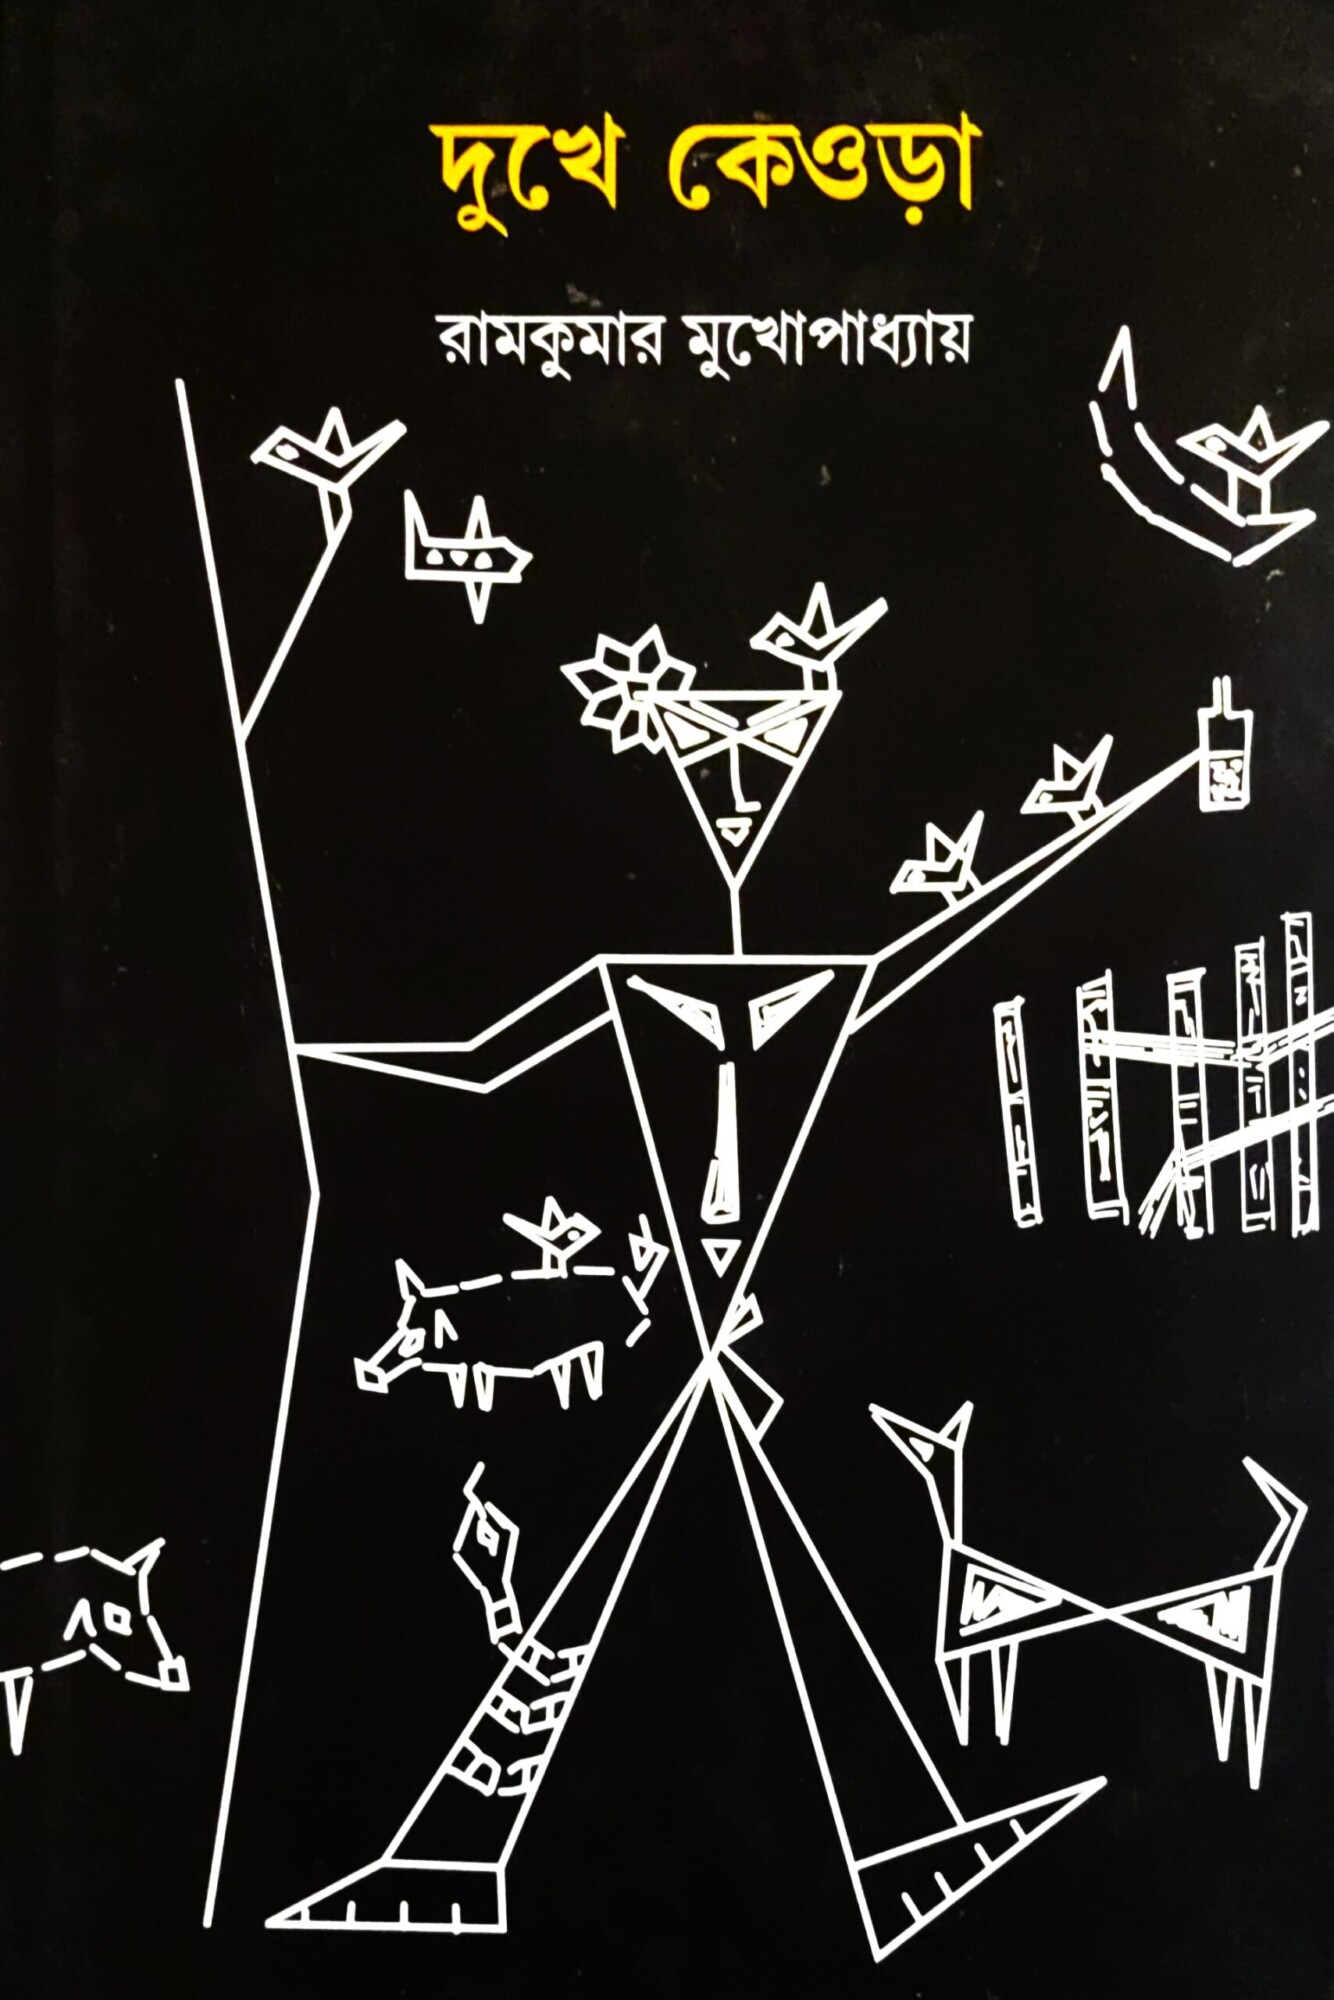 দুখে কেওড়া
রামকুমার মুখোপাধ্যায়